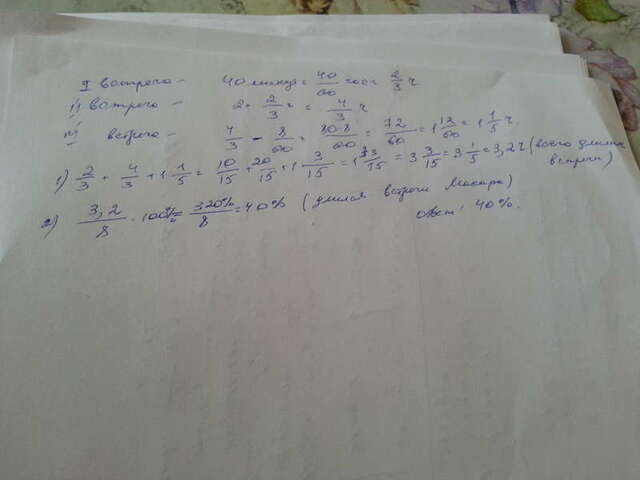 I встреча - 40 минут = 40/60 час = 2/3 ч
II встреча - 2 · 2/3 ч = 4/3 ч
III встреча - 4/3 - 8/60 = 80-8/60 = 72/60 = 1 12/60 = 1 1/5 ч.
1) 2/3 + 4/3 + 1 1/5 = 10/15 + 20/15 + 1 3/15 = 1 33/15 = 3 3/15 = 3 1/5 = 3,2 ч (всего длились встречи)
2) 3,2/8 · 100% = 320%/8 = 40% (длился встречи Макара)
Ответ: 40%.